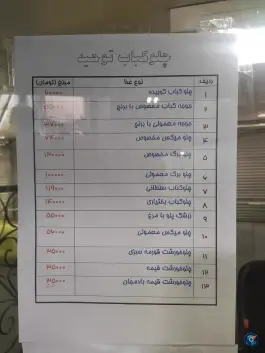 چلوکباب توحید
ردیف نوع غذا مبلغ (تومان)
۱ چلو کباب کوبیده ۶۰۰۰۰
۲ جوجه کباب مخصوص با برنج
۳ جوجه معمولی با برنج
۴ چلو میکس مخصوص ۷۴۰۰۰
۵ چلو برگ مخصوص ۱۴۰۰۰۰
۶ چلو برگ معمولی ۱۰۰۰۰۰
۷ چلوکباب سلطانی ۱۱۹۰۰۰
۸ چلوکباب بختیاری ۱۴۰۰۰۰
۹ زشک پلو با مرغ ۵۵۰۰۰
۱۰ چلو میکس معمولی ۵۶۰۰۰
۱۱ چلوخورشت قورمه سبزی ۳۵۰۰۰
۱۲ چلوخورشت قیمه ۳۵۰۰۰
۱۳ چلوخورشت قیمه بادمجان ۳۵۰۰۰